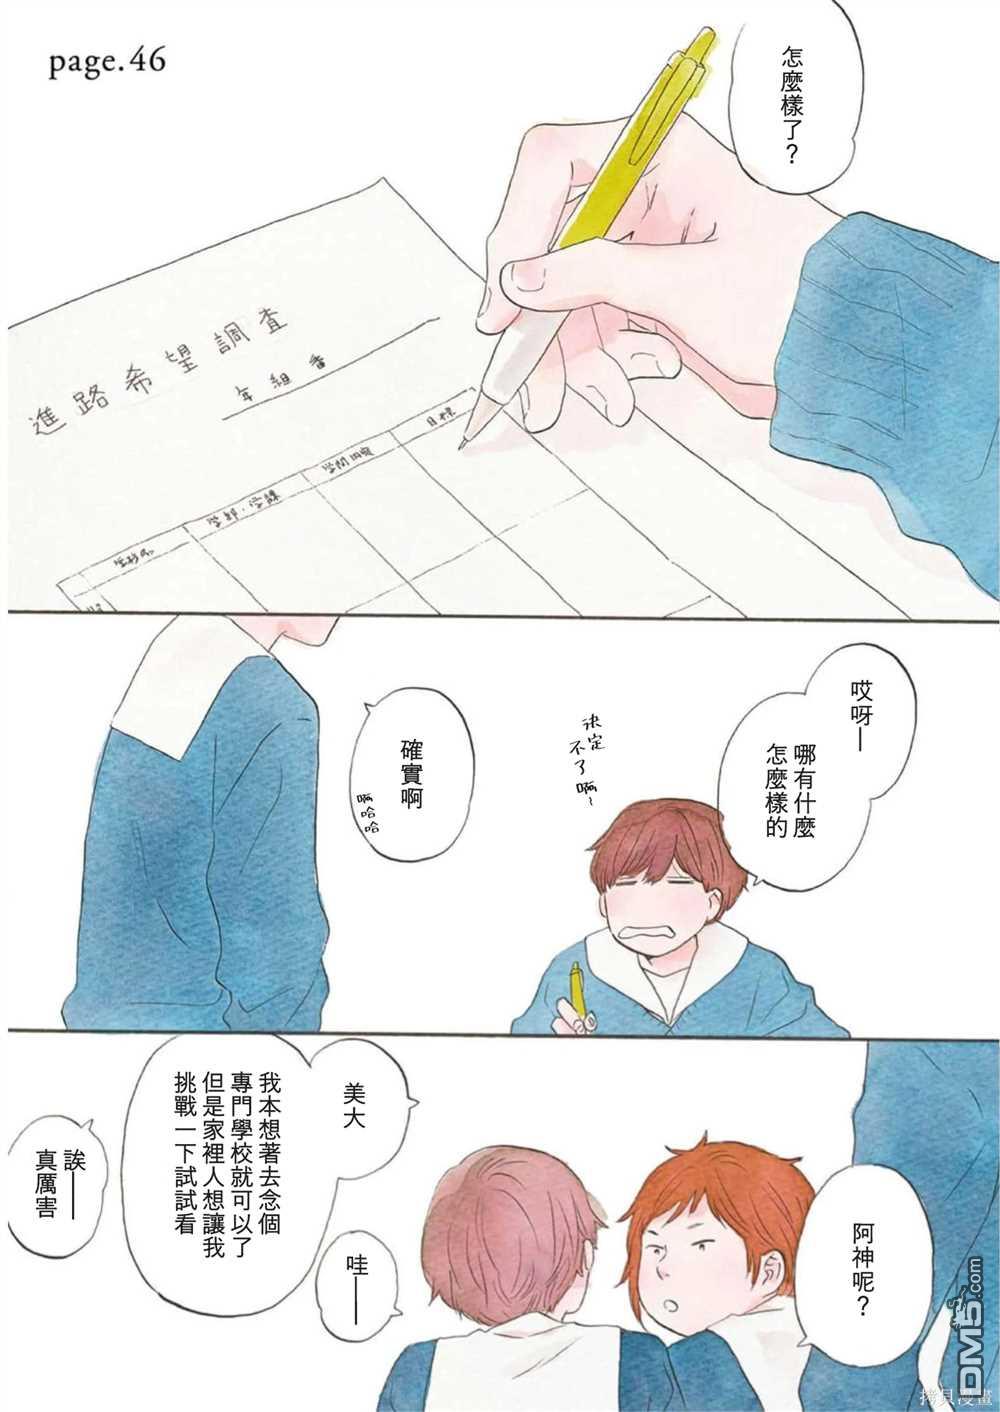 page.46
怎麼樣了？
進路希望調查
年 組 番
目標
哎呀—
哪有什麼
怎麼樣的
決定
不了啊～
確實啊
啊哈哈
阿神呢？
美大
我本想著去念個
專門學校就可以了
但是家裡人想讓我
挑戰一下試試看
哇——
誒——
真厲害
DM5.com
拷貝漫畫